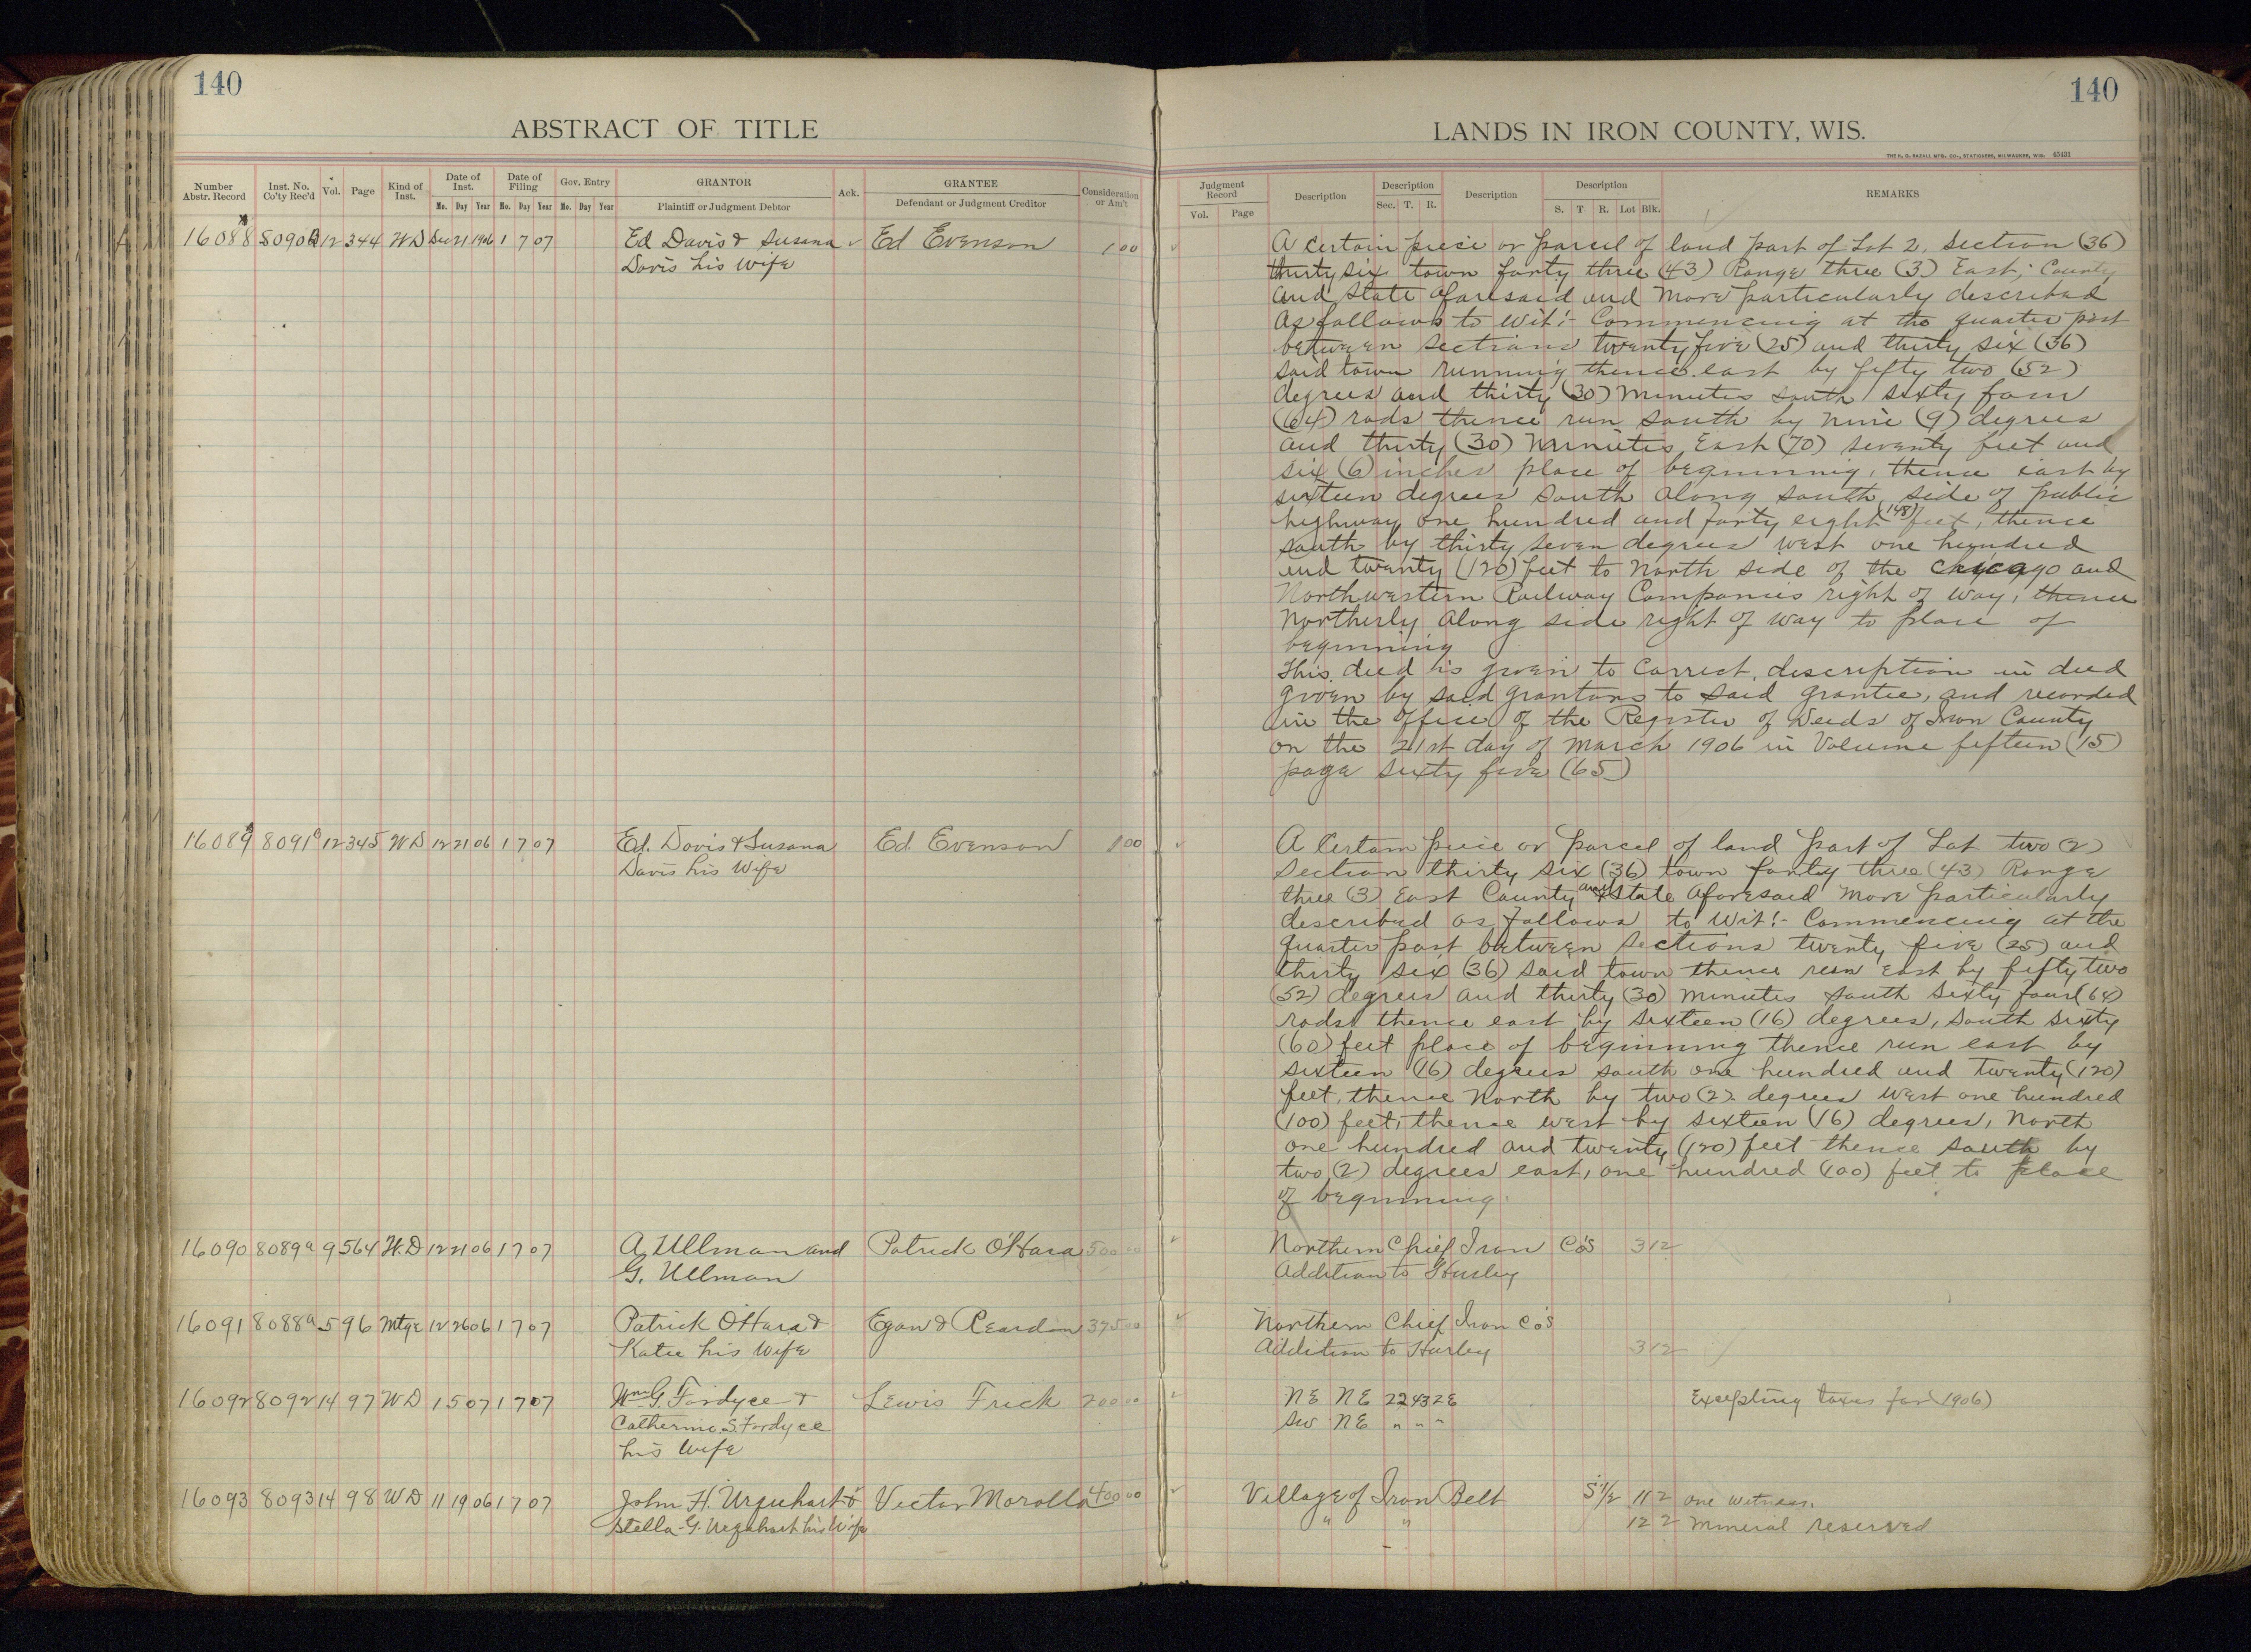 140
ABSTRACT OF TITLE
Number Abstr. Record | Inst. No. Co'ty Rec'd | Vol. | Page | Kind of Inst. | Date of Inst. Mo. Day Year | Date of Filing Mo. Day Year | Gov. Entry Mo. Day Year | GRANTOR Plaintiff or Judgment Debtor | Ack. | GRANTEE Defendant or Judgment Creditor | Consideration or Am't
16088 8090 12 344 WD Dec 21 1906 1 7 07 Ed Davis & Susana Ed Evenson 1 00
Davis his wife
16089 8091 12 345 WD 12 21 06 1 7 07 Ed. Davis & Susana Ed. Evenson 1 00
Davis his Wife
16090 8089a 9 564 12 21 06 1 7 07 A. Ullman and Patrick O'Hara 500 00
G. Ullman
16091 8088a 5 96 Mtge 12 26 06 1 7 07 Patrick O'Hara & Egan & Reardon 375 00
Katie his Wife
16092 8092 14 97 WD 1 5 07 1 7 07 Wm G. Fordyce & Lewis Frick 200 00
Catherine S. Fordyce
his Wife
16093 8093 14 98 WD 11 19 06 1 7 07 John H. Urquhart & Victor Morolla 400 00
Stella G. Urquhart his Wife
140
LANDS IN IRON COUNTY, WIS.
THE H. G. RAZALL MFG. CO., STATIONERS, MILWAUKEE, WIS. 45431
Judgment Record Vol. Page | Description | Description Sec. T. R. | Description | Description S. T. R. Lot Blk. | REMARKS
A certain piece or parcel of land part of Lot 2. Section (36)
thirty six town forty three (43) Range three (3) East; County
and State aforesaid and more particularly described
As follows to Wit:- Commencing at the quarter post
between sections twenty five (25) and thirty six (36)
said town running thence east by fifty two (52)
degrees and thirty (30) minutes south sixty four
(64) rods thence run south by nine (9) degrees
and thirty (30) minutes East (70) seventy feet and
six (6) inches place of beginning, thence east by
sixteen degrees south along south side of public
highway one hundred and forty eight (148) feet, thence
south by thirty seven degrees west one hundred
and twenty (120) feet to North side of the Chicago and
Northwestern Railway Companies right of way, thence
Northerly along side right of way to place of
beginning
This deed is given to correct description in deed
given by said grantors to said grantee, and recorded
in the office of the Register of Deeds of Iron County
on the 21st day of March 1906 in Volume fifteen (15)
page sixty five (65)
A Certain piece or parcel of land part of Lot two (2)
Section thirty six (36) town forty three (43) Range
three (3) East County and State aforesaid more particularly
described as follows to Wit:- Commencing at the
quarter post between sections twenty five (25) and
thirty six (36) said town thence run east by fifty two
(52) degrees and thirty (30) minutes south sixty four (64)
rods thence east by sixteen (16) degrees, south sixty
(60) feet place of beginning thence run east by
sixteen (16) degrees south one hundred and twenty (120)
feet, thence North by two (2) degrees west one hundred
(100) feet, thence west by sixteen (16) degrees, North
one hundred and twenty (120) feet thence south by
two (2) degrees east, one hundred (100) feet to place
of beginning.
Northern Chief Iron Co's 3 12
Addition to Hurley
Northern Chief Iron Co's
Addition to Hurley 3 12
NE NE 22 43 2E Excepting taxes for 1906)
SW NE " " "
Village of Iron Belt S 1/2 11 2 one witness.
" " 12 2 mineral reserved